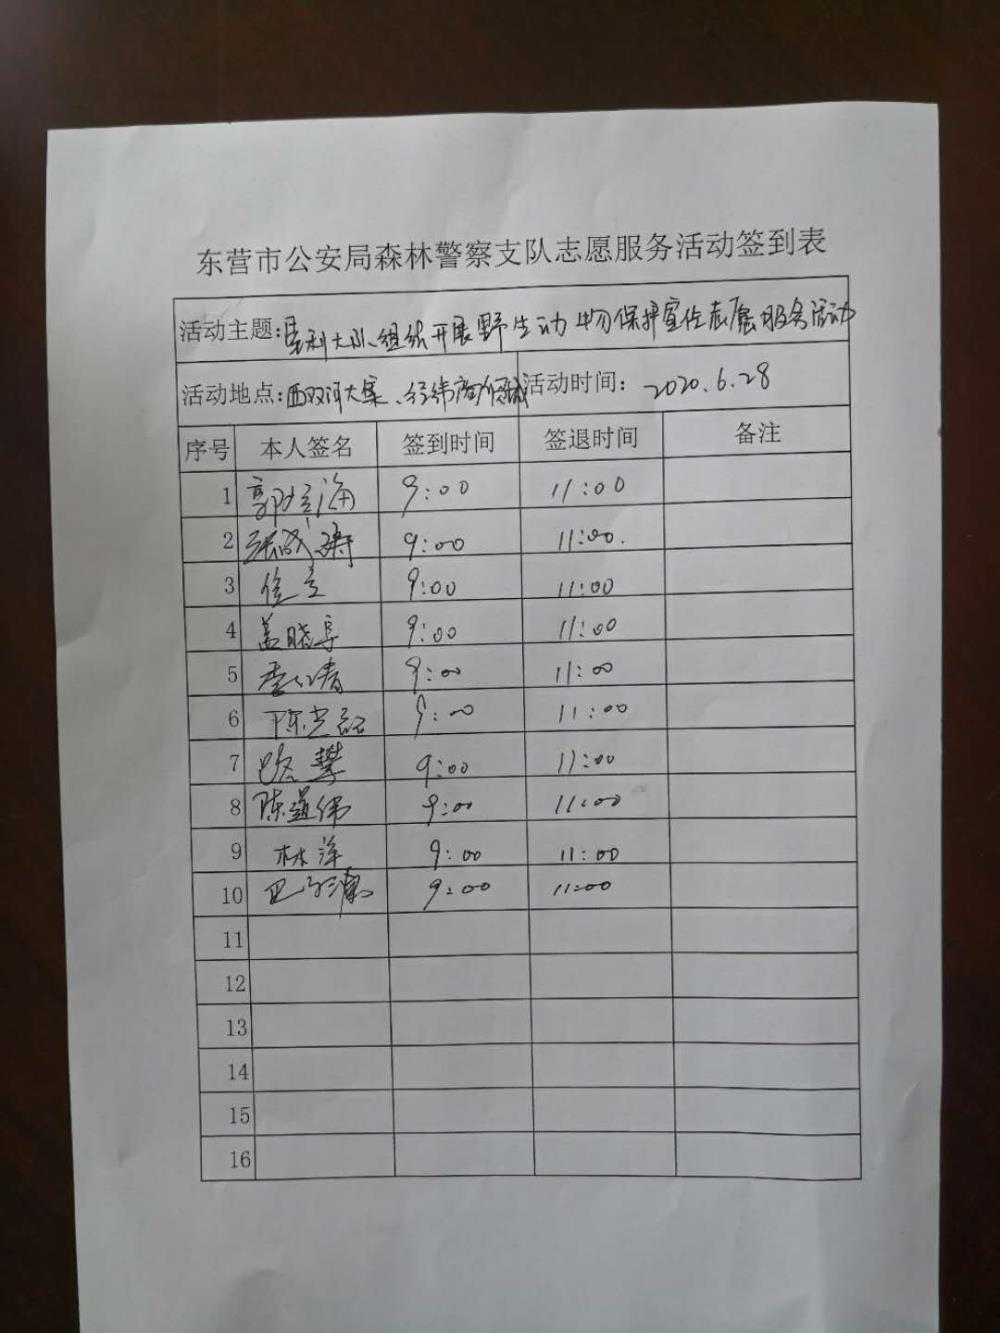 东营市公安局森林警察支队志愿服务活动签到表
活动主题:垦利大队组织开展野生动物保护宣传志愿服务活动
活动地点:西双河大集、经纬商 城 活动时间: 2020.6.28
序号 本人签名 签到时间 签退时间 备注
1 郭 海 9:00 11:00
2 张成 9:00 11:00.
3 9:00 11:00
4 盖晓 9:00 11:00
5 9:00 11:00
6 陈 磊 9:00 11:00
7 9:00 11:00
8 陈道伟 9:00 11:00
9 林洋 9:00 11:00
10 9:00 11:00
11
12
13
14
15
16